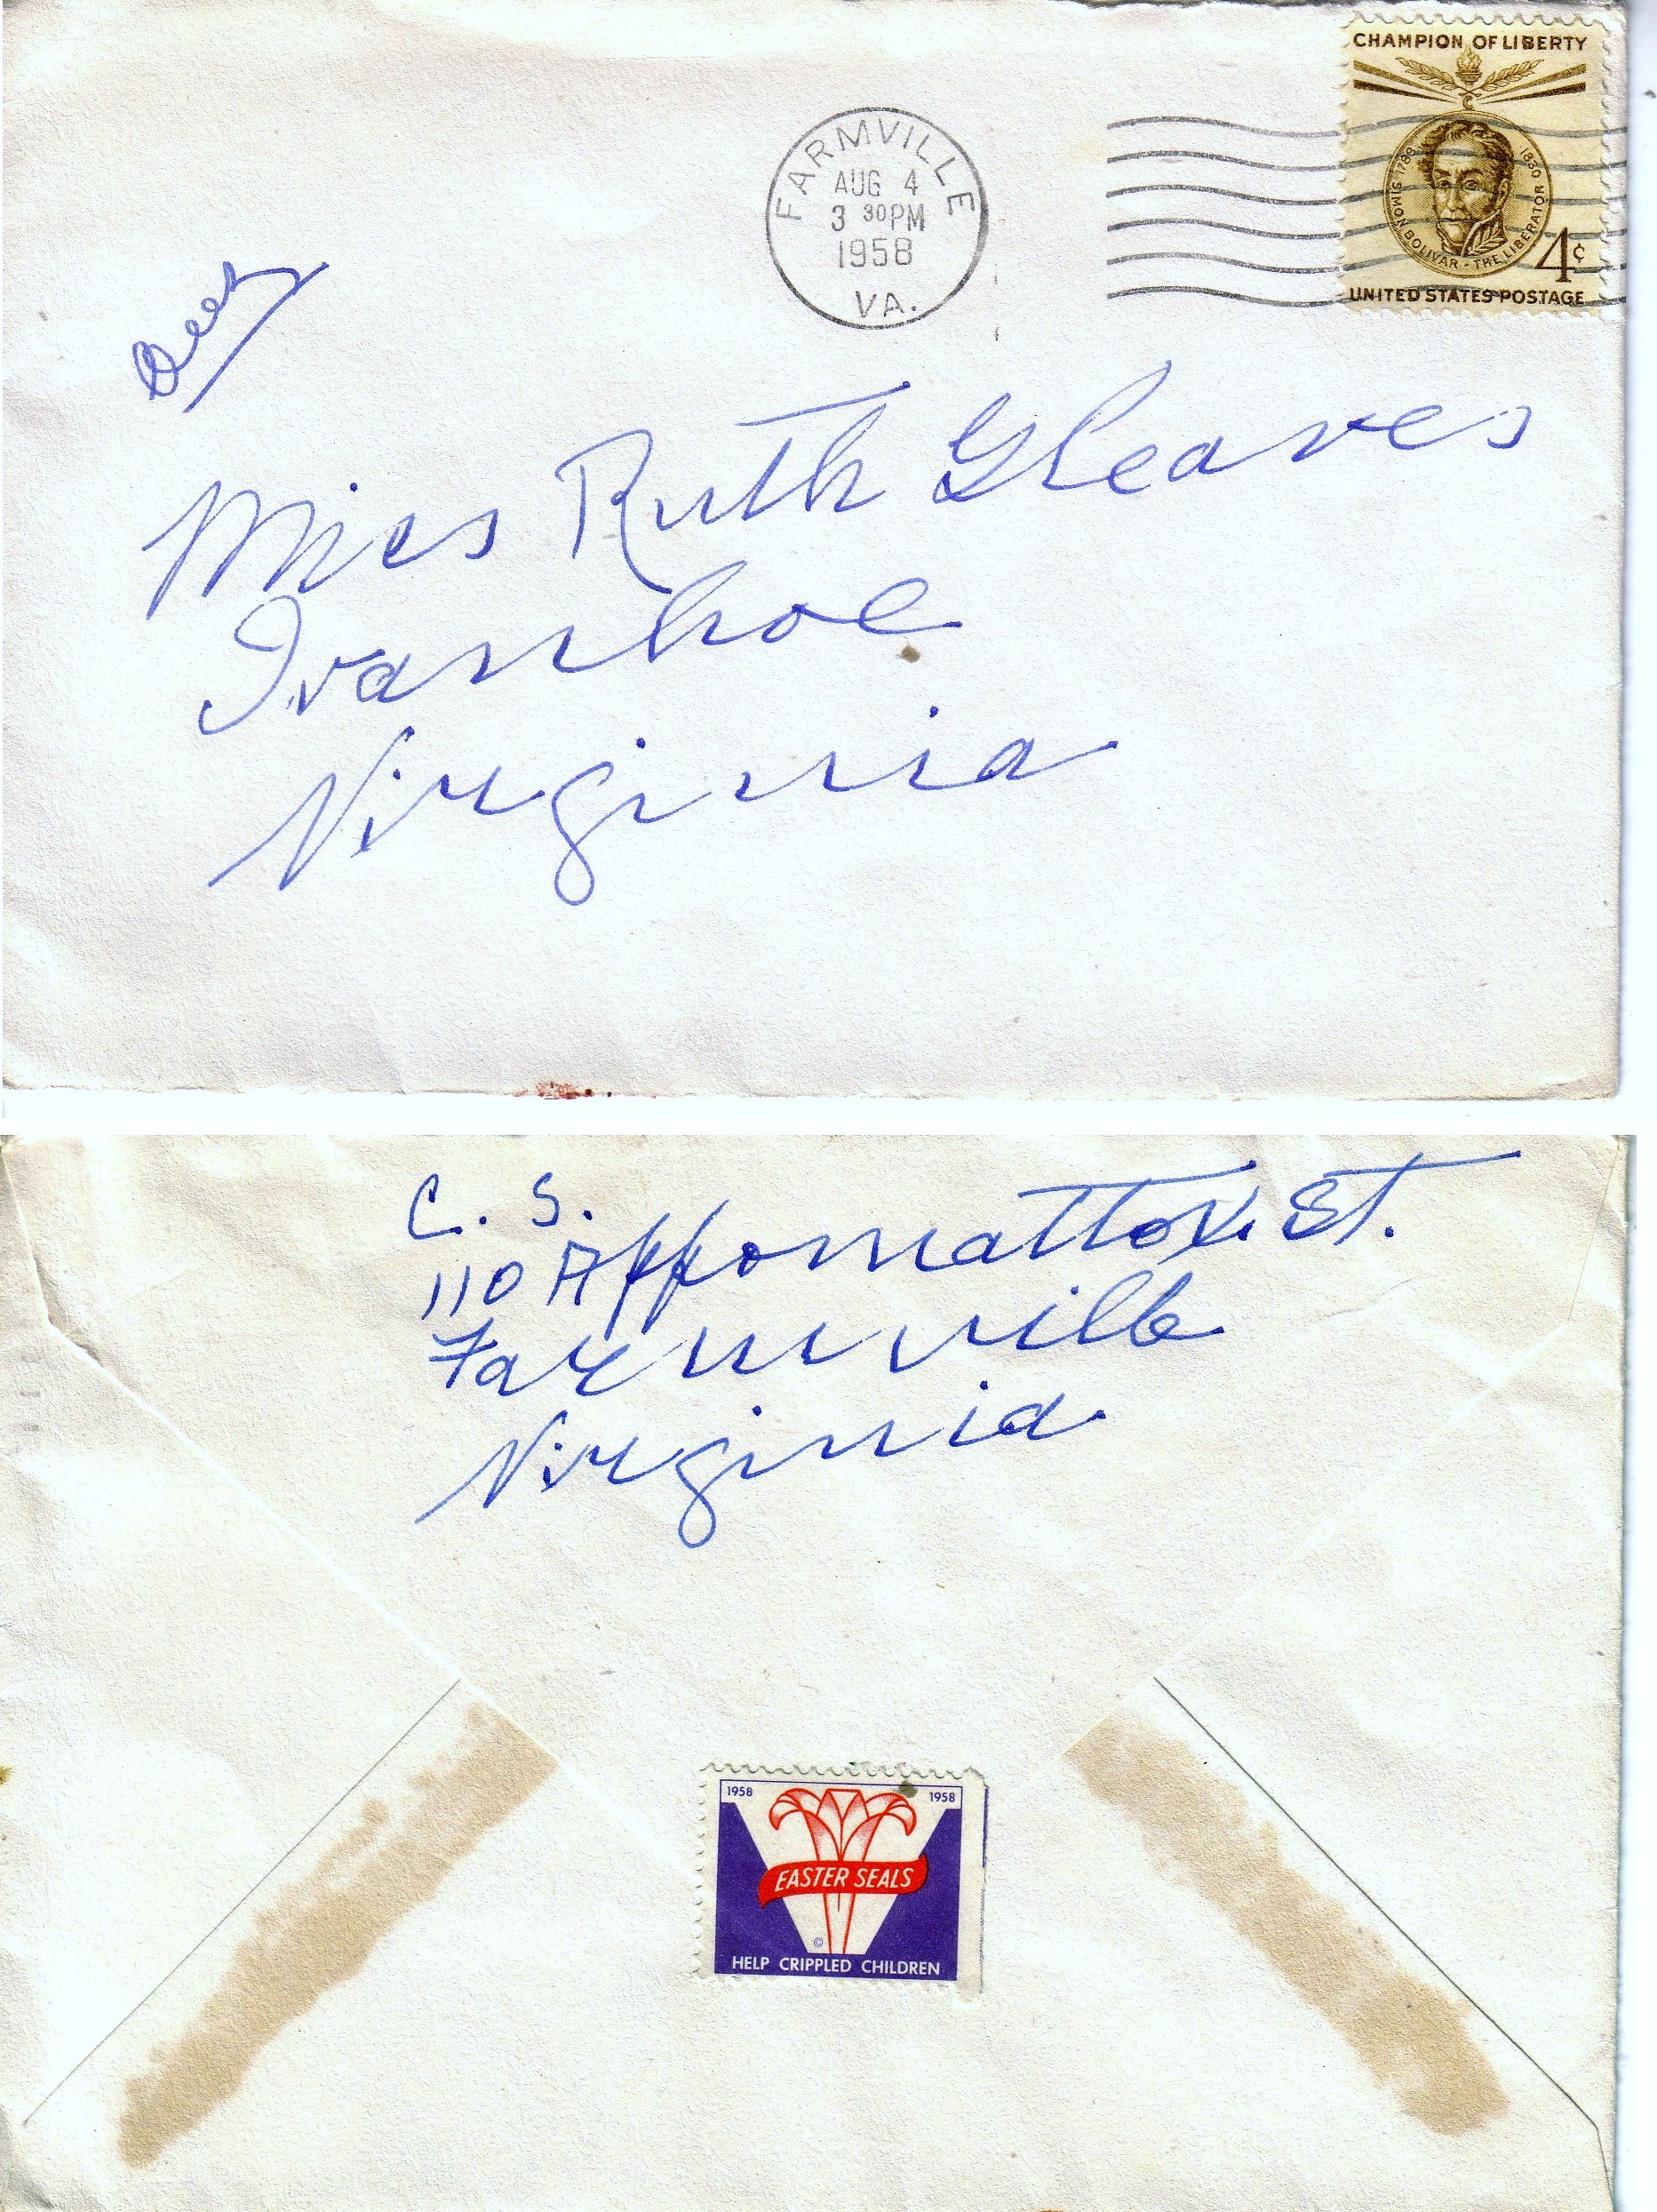 CHAMPION OF LIBERTY
1783 SIMON BOLIVAR - THE LIBERATOR 1830
4¢
UNITED STATES POSTAGE
FARMVILLE
AUG 4
3 30PM
1958
VA.
Miss Ruth Gleaves
Ivanhoe
Virginia
C. S.
110 Appomattox St.
Farmville
Virginia
1958 1958
EASTER SEALS
©
HELP CRIPPLED CHILDREN